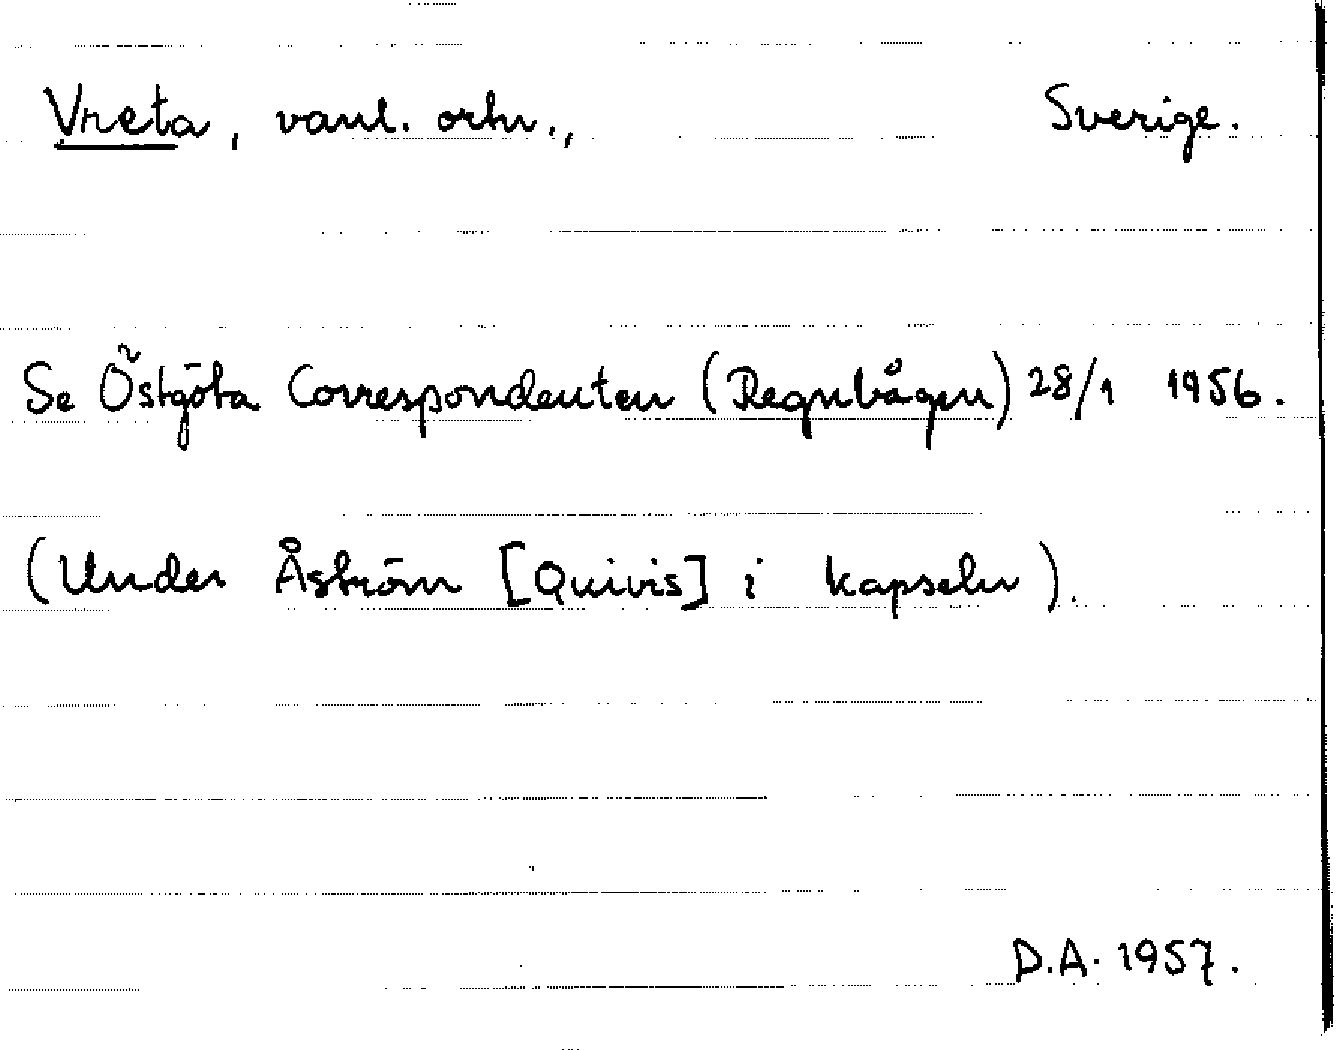 Vreta, vanl. ortn., Sverige.
Se Östgöta Correspondenten (Regnbågen) 28/1 1956.
(Under Åström [Quivis] i kapseln).
D.A. 1957.